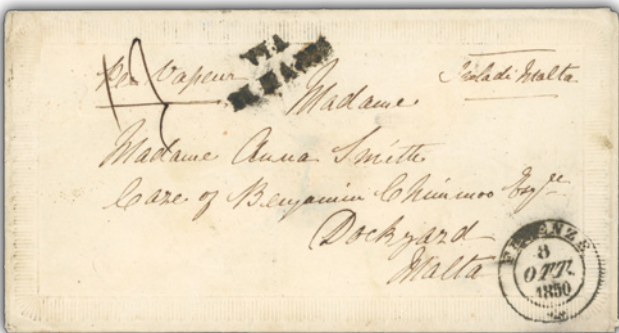 VIA
DI MARE
Per Vapeur
Isola di Malta
Madame
Madame Anna Smith
Care of Benjamin Chimmo Esqre
Dockyard
Malta
FIRENZE
8
OTT.
1850